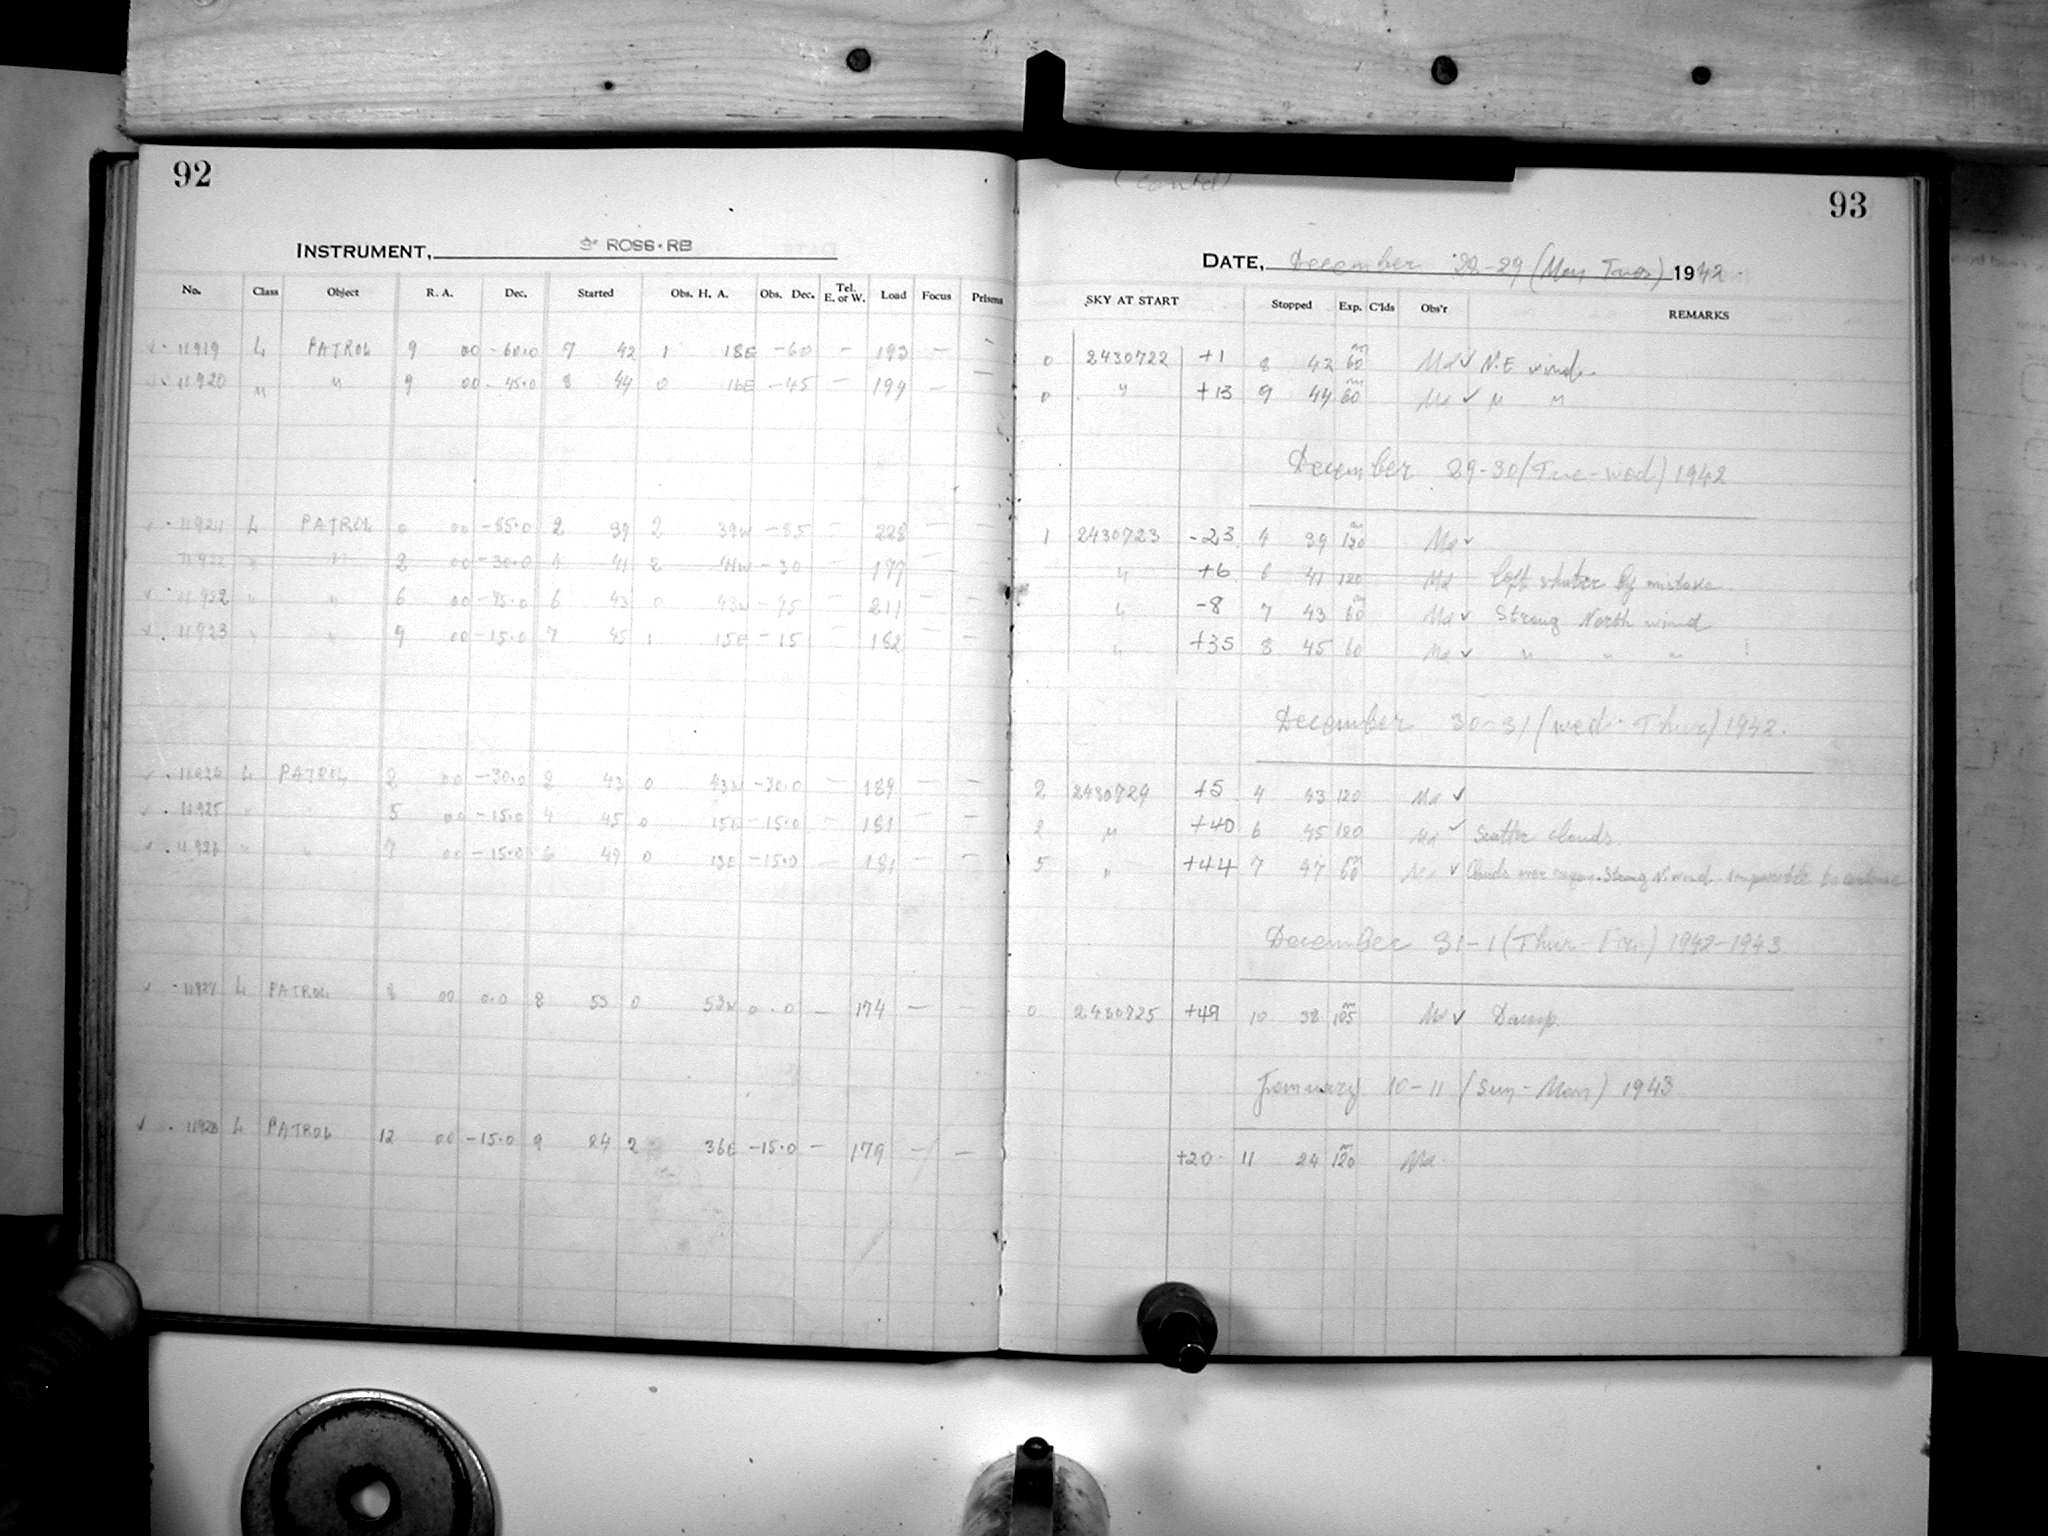 92
INSTRUMENT, 3" ROSS-RB
No. Class Object R. A. Dec. Started Obs. H. A. Obs. Dec. Tel. E. or W. Load Focus Prisms
11919 L PATROL 9 00 -60.0 7 42 1 18E -60 - 193 - -
11920 " " 9 00 -45.0 8 44 0 16E -45 - 199 - -
11921 L PATROL 0 00 -85.0 2 39 2 39W -85 - 228 - -
" " 2 00 -30.0 4 41 2 41W -30 - 177 - -
11922 " " 6 00 -45.0 6 43 0 43W -45 - 211 - -
11923 " " 9 00 -15.0 7 45 1 15E -15 - 182 - -
11924 L PATROL 2 00 -30.0 2 43 0 43W -30.0 - 189 - -
11925 " " 5 00 -15.0 4 45 0 15E -15.0 - 181 - -
11926 " " 7 00 -15.0 6 47 0 13E -15.0 - 181 - -
11927 L PATROL 8 00 0.0 8 53 0 53W 0.0 - 174 - -
11928 L PATROL 12 00 -15.0 9 24 2 36E -15.0 - 179 - -
(contd)
93
DATE, December 28-29 (Mon Tues) 1942
SKY AT START Stopped Exp. C'lds Obs'r REMARKS
0 2430722 +1 8 42 60 Ma ✓ N.E wind
0 " +13 9 44 60 Ma ✓ " "
December 29-30 (Tue-Wed) 1942
1 2430723 -23 4 39 120 Ma ✓
" +6 6 41 120 Ma left shuter by mistake
" -8 7 43 60 Ma ✓ Strong North wind
" +35 8 45 60 Ma ✓ " " "
December 30-31 (Wed-Thur) 1942.
2 2430724 +5 4 43 120 Ma ✓
2 " +40 6 45 120 Ma ✓ Scatter clouds.
5 " +44 7 47 60 Ma ✓ Clouds over region. Strong N. wind impossible to continue
December 31-1 (Thur-Fri) 1942-1943
0 2430725 +49 10 38 105 Ma ✓ Damp.
January 10-11 (Sun-Mon) 1943
+20 11 24 120 Ma